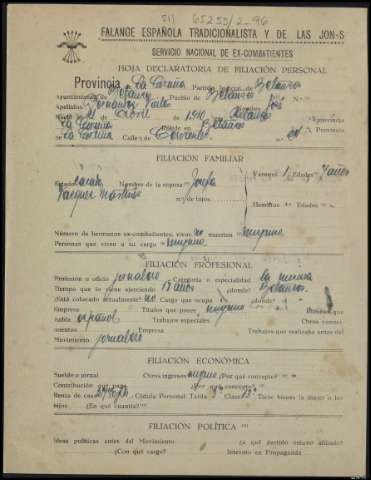 511 65255/2-96
FALANGE ESPAÑOLA TRADICIONALISTA Y DE LAS JON-S
SERVICIO NACIONAL DE EX-COMBATIENTES
HOJA DECLARATORIA DE FILIACIÓN PERSONAL
Provincia de La Coruña Partido Betanzos
Ayuntamiento de Betanzos Pueblo de Betanzos
Apellidos Fernández Nombre José
Abril de 1910 Betanzos
La Coruña Betanzos Provincia
La Coruña Calle
FILIACIÓN FAMILIAR
Estado casado Nombre de la esposa Josefa Varones 1 Edades 7 años
Vázquez Martínez n.º de hijos
Hembras Edades
Número de hermanos ex-combatientes, vivos no muertos ninguno
Personas que viven a su cargo ninguno
FILIACIÓN PROFESIONAL
Profesión u oficio jornalero Categoría o especialidad la misma
Tiempo que lo viene ejerciendo 15 años ¿dónde? Betanzos
¿Está colocado actualmente? no Cargo que ocupa ¿dónde?
Empresa Títulos que posee ninguno Idiomas que
habla español Trabajos especiales Otros conoci-
mientos Empresa Trabajos que realizaba antes del
Movimiento jornalero
FILIACIÓN ECONÓMICA
Sueldo o jornal Otros ingresos ninguno ¿Por qué concepto?
Contribución que paga ¿Por qué concepto?
Renta de casa Cédula Personal Tarifa 3ª Clase 13ª Tiene bienes la mujer o los
hijos ¿En qué cuantía?
FILIACIÓN POLÍTICA
Ideas políticas antes del Movimiento ¿a qué partido estuvo afiliado?
¿Con qué cargo? Intervino en Propaganda